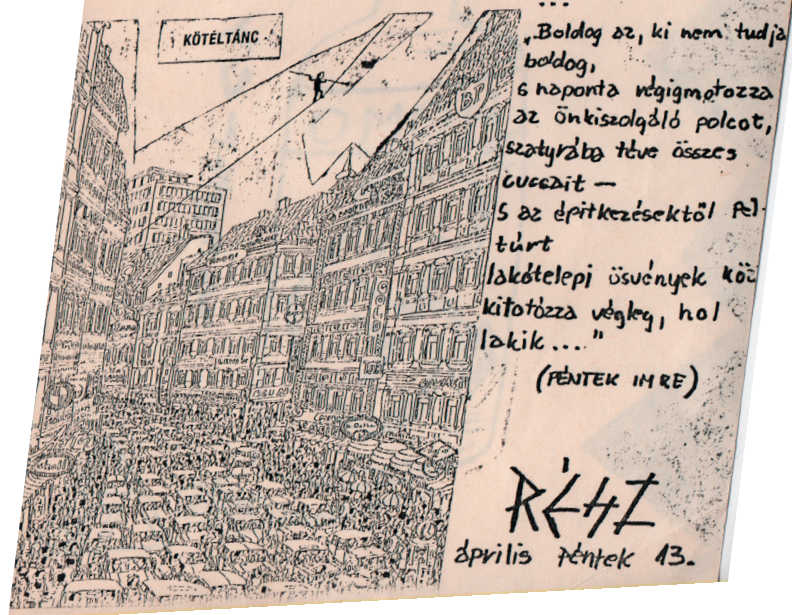 KÖTÉLTÁNC
...
„Boldog az, ki nem tudja
boldog,
s naponta végigmotozza
az önkiszolgáló polcot,
szatyrába téve összes
cuccait —
s az építkezésektől fel-
túrt
lakótelepi ösvények köz
kitotózza végleg, hol
lakik..."
(PÉNTEK IMRE)
BP
RÉSZ
április péntek 13.